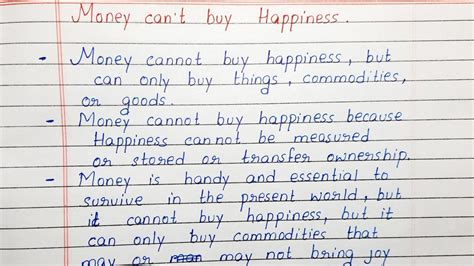 Money can't buy Happiness.
- Money cannot buy happiness, but
can only buy things, commodities,
or goods.
- Money cannot buy happiness because
Happiness cannot be measured
or stored or transfer ownership.
- Money is handy and essential to
survive in the present world, but
it cannot buy happiness, but it
can only buy commodities that
may or may not bring joy